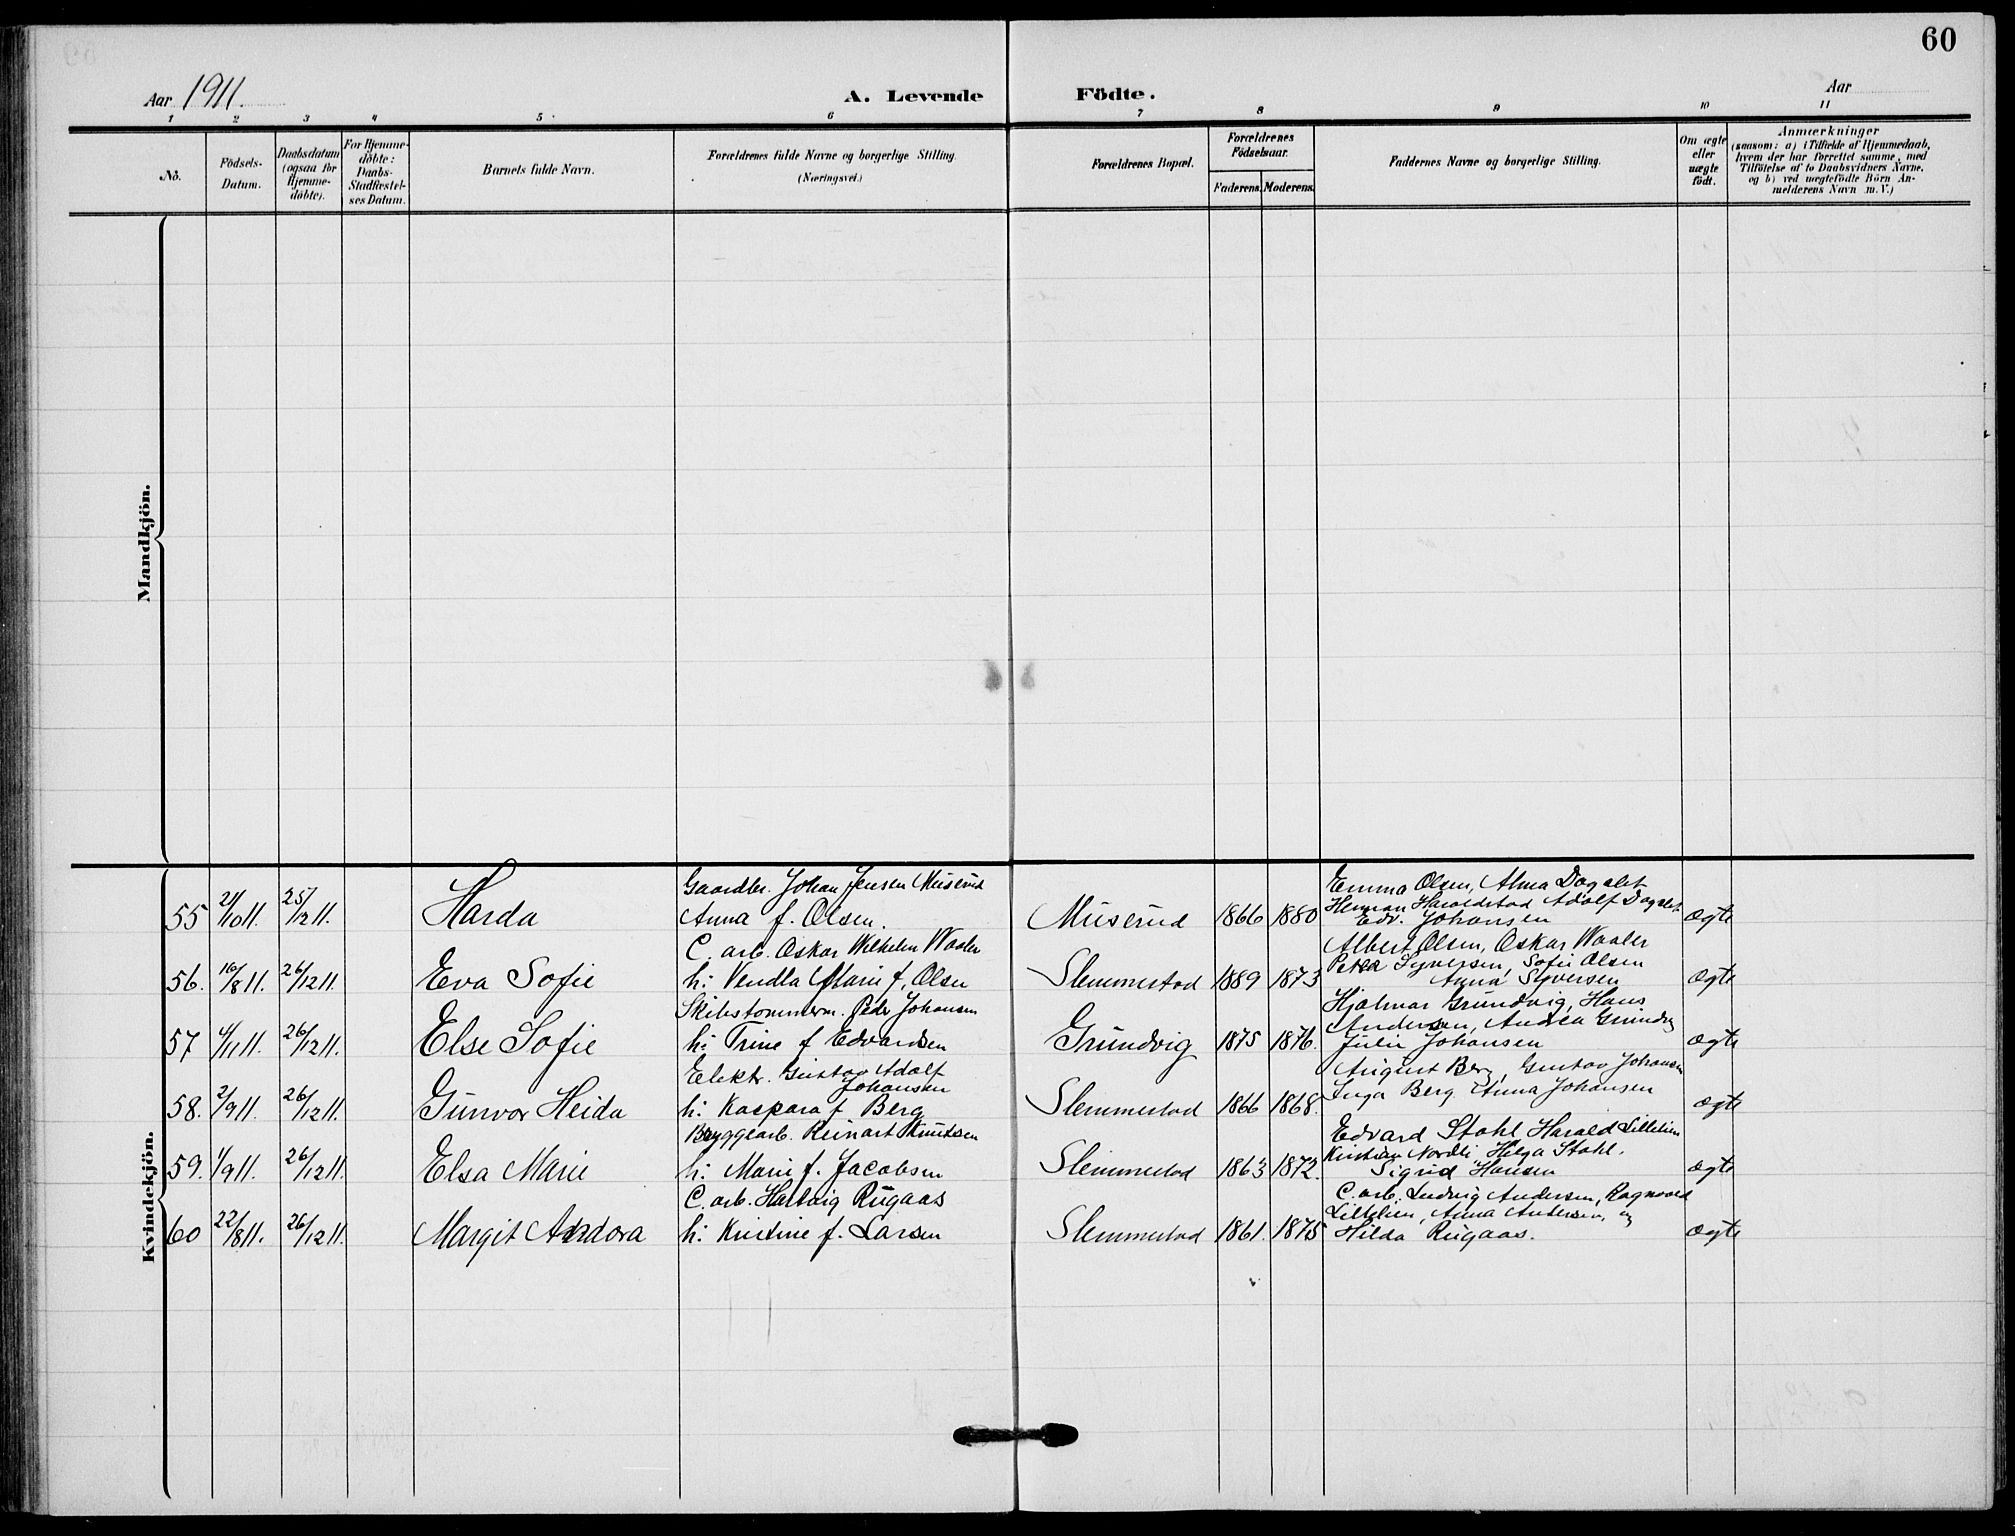 60
Aar 1911.
A. Levende Födte.
Aar
1 2 3 4 5 6 7 8 9 10 11
No.
Födsels-
Datum.
Daabsdatum
(ogsaa for
Hjemme-
döbte).
For Hjemme-
döbte:
Daabs-
Stadfæstel-
ses Datum.
Barnets fulde Navn.
Forældrenes fulde Navne og borgerlige Stilling.
(Næringsvei.)
Forældrenes Bopæl.
Forældrenes
Födselsaar.
Faderens. Moderens.
Faddernes Navne og borgerlige Stilling.
Om ægte
eller
uægte
födt.
Anmærkninger
(saasom: a) i Tilfælde af Hjemmedaab,
hvem der har forrettet samme, med
Tilföielse af to Daabsvidners Navne,
og b) ved uægtefödte Börn An-
melderens Navn m. V.)
Mandkjön.
Kvindekjön.
55 21/10 11. 25/12 11. Harda
Gaardbr. Johan Jensen Muserud
Anna f. Olsen.
Muserud 1866 1880
Emma Olsen, Alma Dagslet
Herman Haraldstad Adolf Dagslet
Edv. Johansen
ægte
56. 16/8 11. 26/12 11. Eva Sofie
C. arb. Oskar Wilhelm Waaler
h: Vendla Marie f. Olsen
Slemmestad 1889 1873
Albert Olsen, Oskar Waaler
Petra Syversen, Sofie Olsen
Anna Syversen
ægte
57 4/11 11. 26/12 11. Else Sofie
Skibstømmerm. Peder Johansen
h: Trine f Edvardsen
Grundvig 1875 1876.
Hjalmar Grundvig, Hans
Andersen, Andrea Grundvig
Julie Johansen
ægte
58. 2/9 11. 26/12 11. Gunvor Heida
Elektr. Gustav Adolf
Johansen
h: Kaspara f Berg
Slemmestad 1866 1868.
August Berg, Gustav Johansen
Inga Berg Anna Johansen
ægte
59. 1/9 11. 26/12 11. Elsa Marie
Bryggearb. Reinart Knutsen
h: Marie f. Jacobsen
Slemmestad 1863 1872.
Edvard Stahl Harald Lillelien
Kristian Nordli, Helga Stahl.
Sigrid Hansen
ægte
60 22/8 11. 26/12 11. Margit Andora
C. arb. Hartvig Rugaas
h: Kristine f. Larsen
Slemmestad 1861. 1875
C. arb. Ludvig Andersen, Ragnvald
Lillelien, Anna Andersen, og
Hilda Rugaas.
ægte